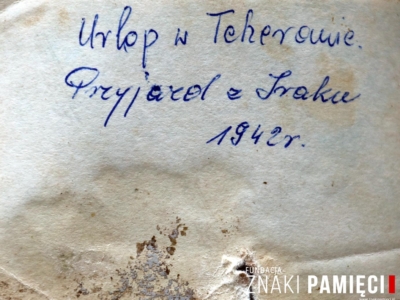 Urlop w Teheranie.
Przyjazd z Iraku
1942r.
FUNDACJA
ZNAKI PAMIĘCI